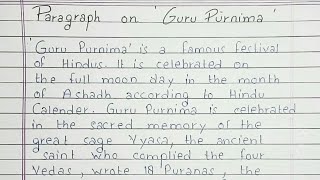 Paragraph on 'Guru Purnima'
'Guru Purnima' is a famous festival
of Hindus. It is celebrated on
the full moon day in the month
of Ashadh according to Hindu
Calender. Guru Purnima is celebrated
in the sacred memory of the
great cage Vyasa, the ancient
saint who complied the four
Vedas, wrote 18 Puranas, the